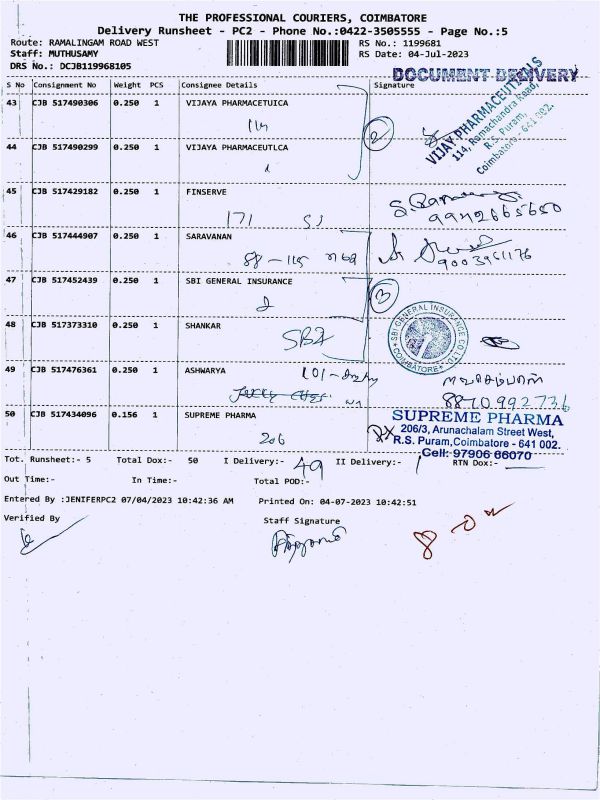 THE PROFESSIONAL COURIERS, COIMBATORE
Delivery Runsheet - PC2 - Phone No.:0422-3505555 - Page No.:5
Route: RAMALINGAM ROAD WEST RS No.: 1199681
Staff: MUTHUSAMY RS Date: 04-Jul-2023
DRS No.: DCJB119968105
DOCUMENT DELIVERY
S No Consignment No Weight PCS Consignee Details Signature
43 CJB 517490306 0.250 1 VIJAYA PHARMACETUICA
114
2
VIJAY PHARMACEUTICALS
114, Ramachandra Road,
R.S. Puram,
Coimbatore - 641 002.
44 CJB 517490299 0.250 1 VIJAYA PHARMACEUTLCA
45 CJB 517429182 0.250 1 FINSERVE
171 SJ
9942665650
46 CJB 517444907 0.250 1 SARAVANAN
9003961176
47 CJB 517452439 0.250 1 SBI GENERAL INSURANCE
2
3
SBI GENERAL INSURANCE CO LTD
COIMBATORE
48 CJB 517373310 0.250 1 SHANKAR
SBI
49 CJB 517476361 0.250 1 ASHWARYA
101
8870992736
50 CJB 517434096 0.156 1 SUPREME PHARMA
206
SUPREME PHARMA
206/3, Arunachalam Street West,
R.S. Puram,Coimbatore - 641 002.
Cell: 97906 66070
Tot. Runsheet:- 5 Total Dox:- 50 I Delivery:- 49 II Delivery:- 1 RTN Dox:-
Out Time:- In Time:- Total POD:-
Entered By :JENIFERPC2 07/04/2023 10:42:36 AM Printed On: 04-07-2023 10:42:51
Verified By Staff Signature